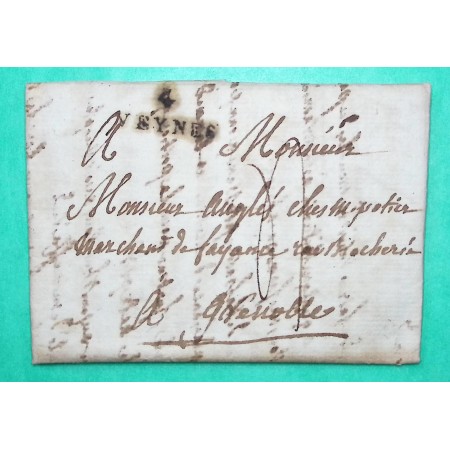 4
VEYNES
A Monsieur
Monsieur Anglés ches mr potier
marchand de fayance rue Brocherie
A Grenoble